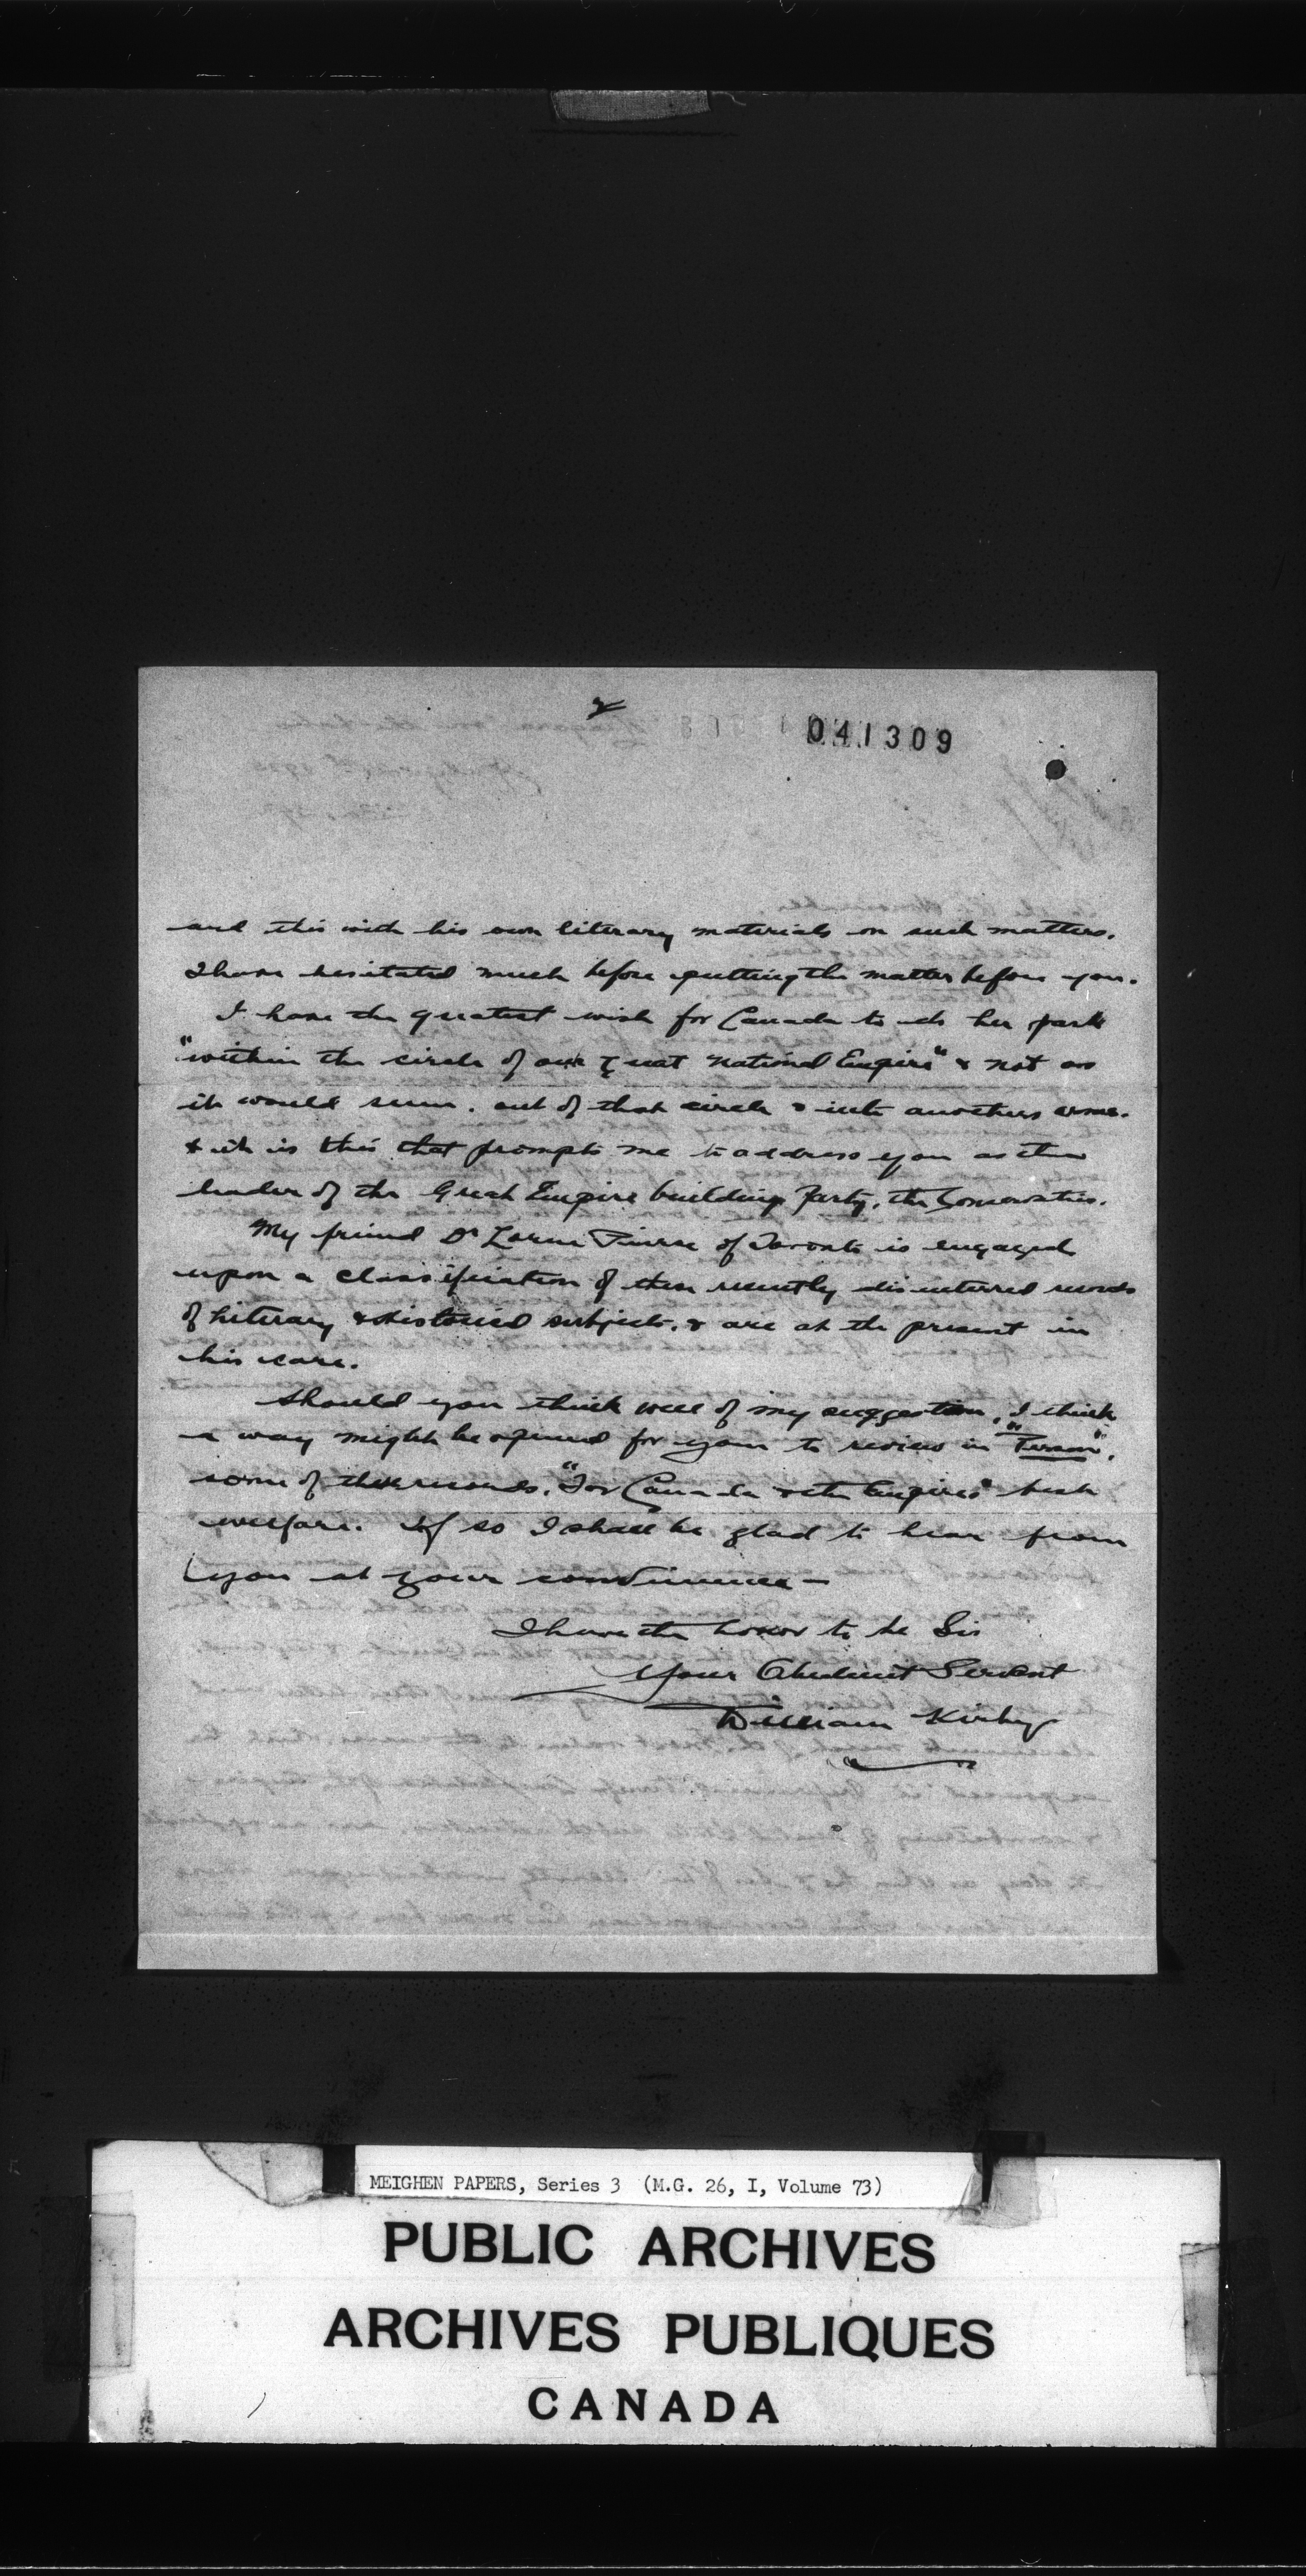 2
041309
and this with his own literary materials on such matters.
I have hesitated much before putting the matter before you.
I have the greatest wish for Canada to do her part
"within the circle of our Great National Empire" & not as
it would seem. out of that circle & into anothers arms.
& it is this that prompts me to address you as the
leader of the Great Empire building Party, the Conservative.
My friend Dr Lorne Pierce of Toronto is engaged
upon a classification of these recently disinterred records
of Literary & historical subjects. & are at the present in
his care.
Should you think well of my suggestion, I think
a way might be opened for you to review in "Person",
some of these records. "For Canada & the Empires" best
welfare. If so I shall be glad to hear from
you at your convenience—
I have the honor to be Sir
Your Obedient Servant
William Kirby
MEIGHEN PAPERS, Series 3 (M.G. 26, I, Volume 73)
PUBLIC ARCHIVES
ARCHIVES PUBLIQUES
CANADA